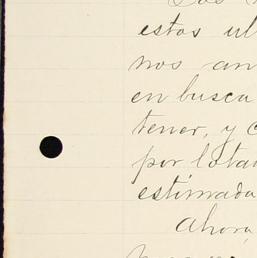 estos ul
nos an
en busca
tener, y c
por lo tan
estimada
Ahora,